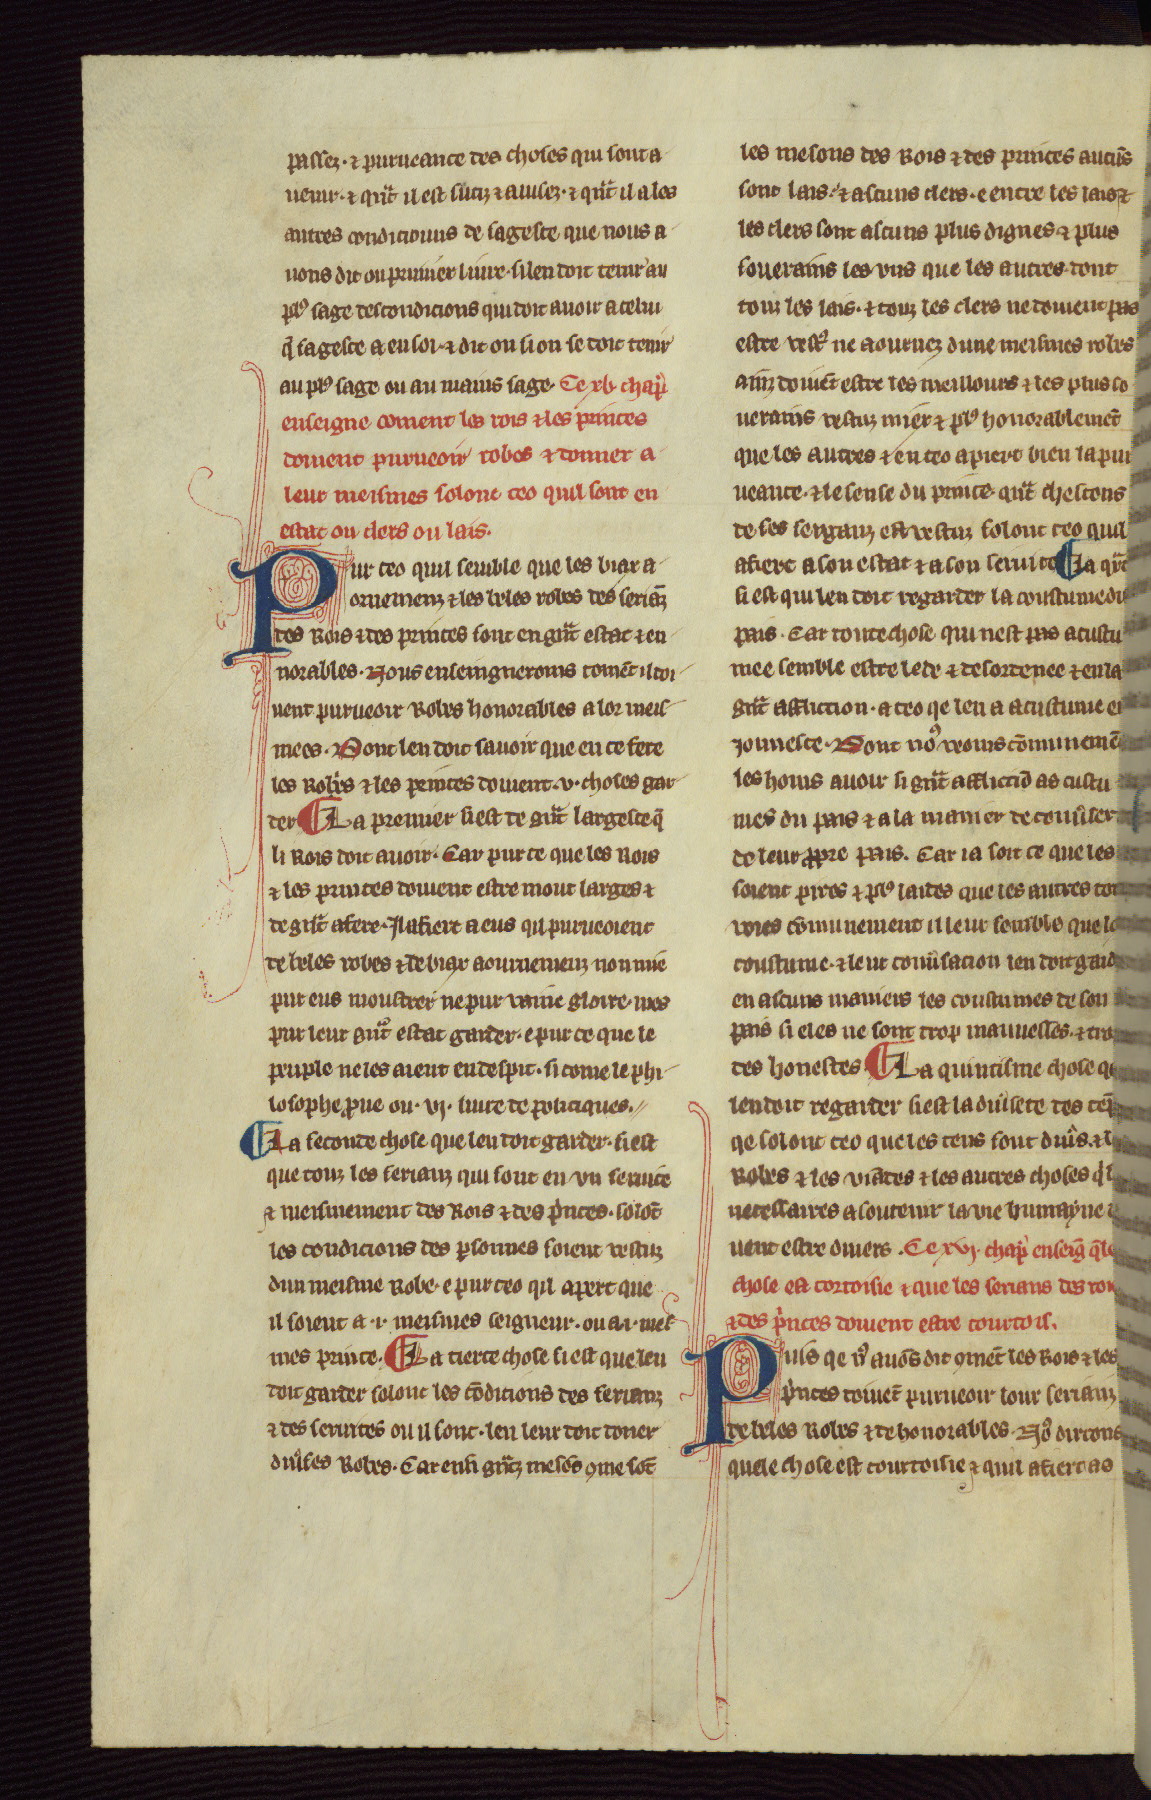 passez· ⁊ purueance des choses qui sont a
uenir· ⁊ qñt il est sutiz ⁊ auisez· ⁊ qñt il a les
autres condiciouns de sagesce que nous a-
uons dit ou primier liure· si len doit tenir au
plꝰ sage des condicions qui doit auoir a celui
q̃ sagesce a en soi· ⁊ dit ou si on se doit tenir
au plꝰ sage ou au mains sage· Ce xv· chap̃
enseigne coment les rois ⁊ les princes
doiuent purueoir robes ⁊ donner a
leur meismes solonc ceo quil sont en
estat ou clers ou lais·
Pur ceo quil semble que les biax a-
ornemenz ⁊ les beles robes des seriãz
des Rois ⁊ des princes sont en gñt estat ⁊ en-
norables· Nous enseingnerouns comẽt il doi-
uent purueoir Robes honorables a lor meis-
mees· Dont len doit sauoir que en ce fere
les Robes ⁊ les princes doiuent· v· choses gar-
der La premier si est de gñt largesce q̃
li Rois doit auoir· Car pur ce que les Rois
⁊ les princes doiuent estre mout larges ⁊
de gñt afere· Il afiert a eus qil purueoient
de beles robes ⁊ de biax aournemenz non mie
pur eus moustrer ne pur vaine gloire· mes
pur leur gñt estat garder· e pur ce que le
peuple ne les aient en despit· si come le phi-
losophe ꝓue ou· vj· liure de politiques·//
La seconde chose que len doit garder· si est
que touz les serianz qui sont en vn seruice
⁊ meismement des Rois ⁊ des pͥnces· solõc
les condicions des ꝑsonnes soient vestuz
dun meisme Robe· e pur ceo qil apert que
il soient a ·i· meismes seigneur· ou a ·i· meis-
mes prince· La tierce chose si est que len
doit garder solonc les cõdicions des serianz
⁊ des seruices ou il sont· len leur doit doner
diũses Robes· Car ensi gñz mesõs ꝯme sõt
les mesons des Rois ⁊ des princes aucũs
sont lais· ⁊ ascuns clers· e entre les lais ⁊
les clers sont ascuns plus dignes ⁊ plus
souerains les vns que les autres· dont
touz les lais· ⁊ touz les clers ne doiuent pas
estre vestꝰ ne aournez dune meismes robes
ainz doiuẽt estre les meillours ⁊ les plus so
uerains vestuz mier ⁊ plꝰ honorablemẽt
que les autres ⁊ en ceo apiert bien la pur
ueance· ⁊ le sense du prince· qñt chescons
de ses serganz est vestuz solonc ceo quil
afiert a son estat ⁊ a son seruice La qrte
si est qui len doit regarder la coustume du
pais· Car toute chose qui nest pas acustu
mee semble estre lede ⁊ desordenee ⁊ en la
gñt affliction· a ceo qe len a acustume en
jounesce· Dont noꝰ veons cõmunemẽt
les homs auoir si gñt afflictiõ as custu
mes du pais ⁊ a la manier de conũser
de leur ꝓpre pais· Car ia soit ce que les
soient pires ⁊ plꝰ laides que les autres
voies cõmunement il leur semble que
coustume· ⁊ leur conũsacion len doit
en ascuns maniers les coustumes de son
pais si eles ne sont trop mauuesses· ⁊
des honestes La quintisme chose
len doit regarder si est la diũsete des tẽs
qe solonc ceo que les tens sont diũs· ⁊
Robes ⁊ les viãdes ⁊ les autres choses
necessaires a soutenir la vie humayne
uent estre diuers· Ce xvj· chap̃ enseig̃ q̃le
chose est cortoisie ⁊ que les serians des
⁊ des pͥnces doiuent estre courtois·
Puis qe nꝰ auõs dit ꝯmẽt les Rois ⁊ les
pͥnces doiuẽt purueoir lour serianz
de beles Robes ⁊ de honorables· Noꝰ dirrons
quele chose est courtoisie ⁊ quil afiert as